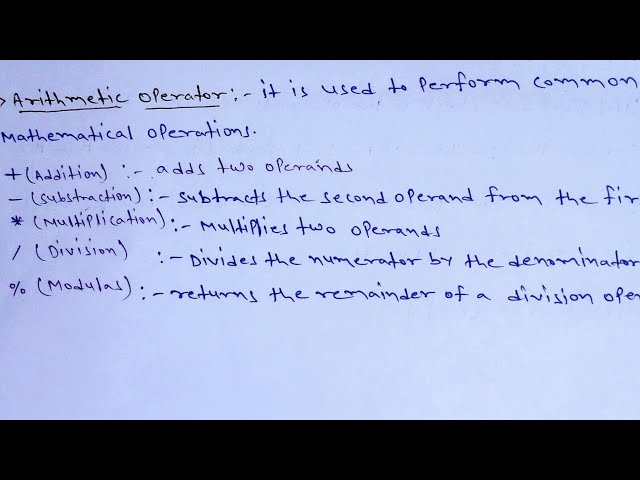 > Arithmetic operator:- it is used to perform common
Mathematical operations.
+ (Addition) :- adds two operands
- (Substraction) :- subtracts the second operand from the fir
* (Multiplication) :- Multiplies two operands
/ (Division) :- Divides the numerator by the denominator
% (Modulas) :- returns the remainder of a division oper